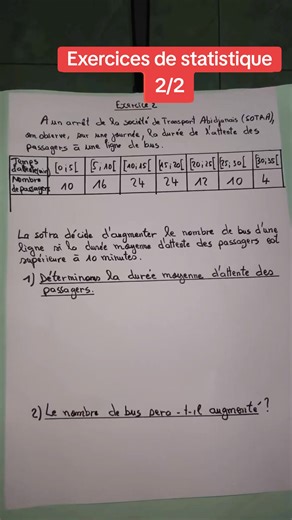 Exercices de statistique
2/2
Exercice 2
A un arrêt de la société de Transport Abidjanais (SOTRA),
on observe, sur une journée, la durée de l'attente des
passagers à une ligne de bus.
Temps d'attente (min) [0;5[ [5;10[ [10;15[ [15;20[ [20;25[ [25;30[ [30;35[
Nombre de passagers 10 16 24 24 12 10 4
La sotra décide d'augmenter le nombre de bus d'une
ligne si la durée moyenne d'attente des passagers est
supérieure à 10 minutes.
1) Déterminons la durée moyenne d'attente des
passagers.
2) Le nombre de bus sera-t-il augmenté?